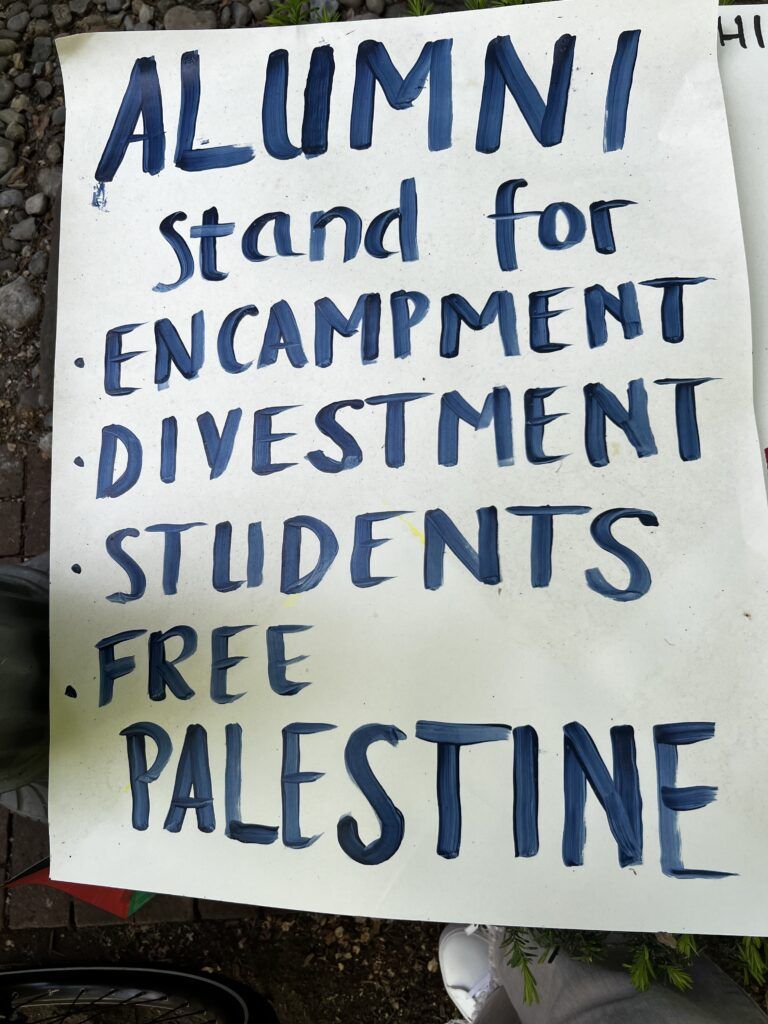 ALUMNI
stand for
• ENCAMPMENT
• DIVESTMENT
• STUDENTS
• FREE
PALESTINE
HI